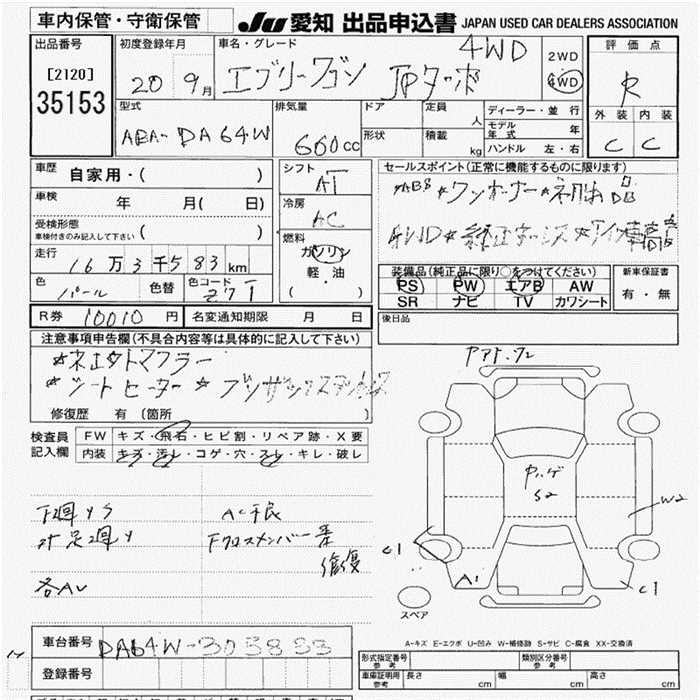 車内保管・守衛保管
JU 愛知 出品申込書 JAPAN USED CAR DEALERS ASSOCIATION
出品番号 [2120] 35153
初度登録年月 20 9月
車名・グレード エブリーワゴン JPターボ 4WD
2WD 4WD
評価点 R
外装 内装
C C
型式 ABA-DA64W
排気量 660cc
ドア 形状
定員 人
積載 kg
ディーラー・並行
モデル年式 年
ハンドル 左・右
車歴 自家用・( )
車検 年 月( 日)
受検形態 車検付きのみ記入して下さい ( )
走行 16万3千583km
色 パール 色替 色コード Z7T
シフト AT
冷房 AC
燃料 ガソリン 軽油 ( ・ )
セールスポイント(正常に機能するものに限ります)
☆ABS☆ワンオーナー☆
4WD☆純正
装備品(純正品に限り○をつけてください)
PS PW エアB AW
SR ナビ TV カワシート
新車保証書 有・無
R券 10010円 名変通知期限 月 日
後日品
注意事項申告欄(不具合内容等は具体的に記入して下さい)
マフラー
☆シートヒーター☆
修復歴 有(箇所 )
検査員記入欄
FW キズ・飛石・ヒビ割・リペア跡・X要
内装 キズ・汚レ・コゲ・穴・スレ・キレ・破レ
下廻りS
足廻り
各AU
AC不良
Fクロスメンバー一番
修復
S2
W2
C1
A1
C1
スペア
A-キズ E-エクボ U-凹み W-補修跡 S-サビ C-腐食 XX-交換済
車台番号 DA64W-303853
登録番号
形式指定番号 参考
類別区分番号 参考
車庫証明用 参考 長さ cm 幅 cm 高さ cm